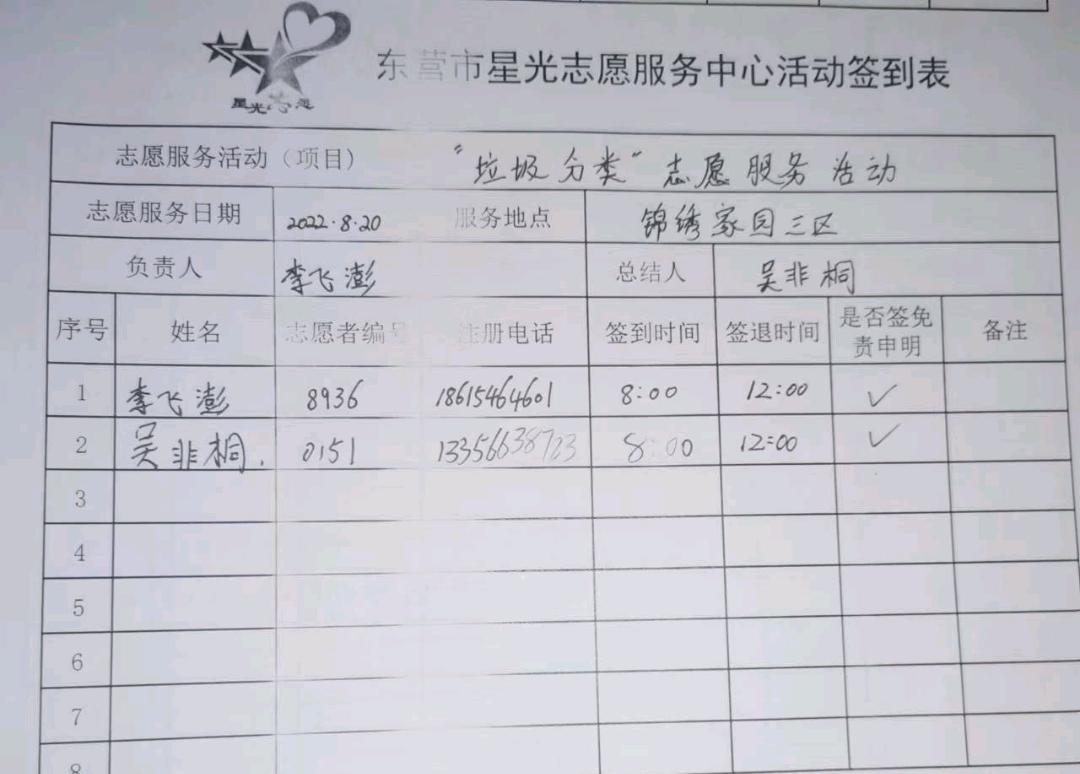 星光志愿
东营市星光志愿服务中心活动签到表
志愿服务活动（项目） “垃圾分类”志愿服务活动
志愿服务日期 2022.8.20 服务地点 锦绣家园三区
负责人 李飞澎 总结人 吴非桐
序号 姓名 志愿者编号 注册电话 签到时间 签退时间 是否签免责申明 备注
1 李飞澎 8936 18615464601 8:00 12:00 ✓
2 吴非桐. 0151 13356638723 8:00 12:00 ✓
3
4
5
6
7
8